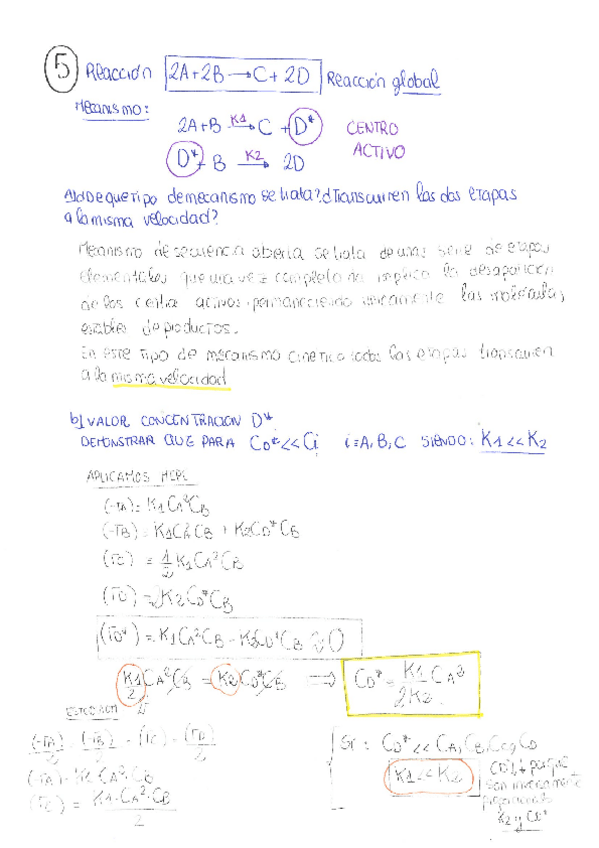 5 Reacción 2A+2B→C+2D Reacción global
Mecanismo:
2A+B -K1→ C + D* CENTRO
D* + B -K2→ 2D ACTIVO
A) ¿De que tipo de mecanismo se trata? ¿Transcurren las dos etapas
a la misma velocidad?
Mecanismo de secuencia abierta se trata de una serie de etapas
elementales que una vez completada implica la desaparición
de los centros activos permaneciendo unicamente las moléculas
estables de productos.
En este tipo de mecanismo cinetico todas las etapas transcurren
a la misma velocidad
b) VALOR CONCENTRACION D*
DEMONSTRAR QUE PARA CD*<<Ci i=A,B,C SIENDO: K1<<K2
APLICAMOS HEPE
(-rA)= K1CA²CB
(-rB)= K1CA²CB + K2CD*CB
(rC) = 1/2 K1CA²CB
(rD) = 2K2CD*CB
(rD*) = K1CA²CB - K2CD*CB ≈ 0
K1/2 CA²CB = K2CD*CB ⟹ CD* = K1/2K2 CA²
(-rA)/2 = (-rB)/2 = (rC) = (rD)/2
(-rA) = K1 CA²·CB
(rC) = K1·CA²·CB/2
Si: CD*<<CA, CB, CC, CD
K1<<K2
porque
son inversamente
proporcionales
K2 y CD*